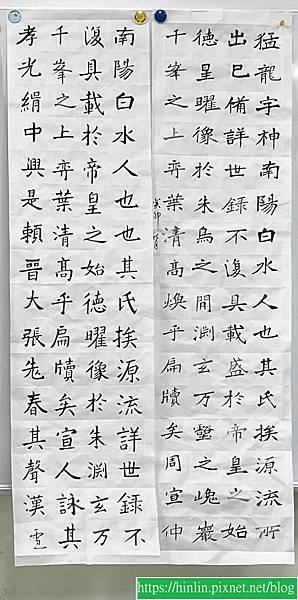 猛龍字神南陽白水人也其氏挨源流所
出已俻詳世録不復具載盛於帝皇之始
德星曜像於朱鳥之間渕玄万壑之峗巖
千峯之上弈葉清高煥乎扁牘矣周宣仲
癸卯
南陽白水人也也其氏挨源流詳世録不
復具載於帝皇之始德曜像於朱渕玄万
千峯之上弈葉清高乎扁牘矣宣人詠其
孝光絹中興是頼晉大張老春其聲漢
https://hinlin.pixnet.net/blog